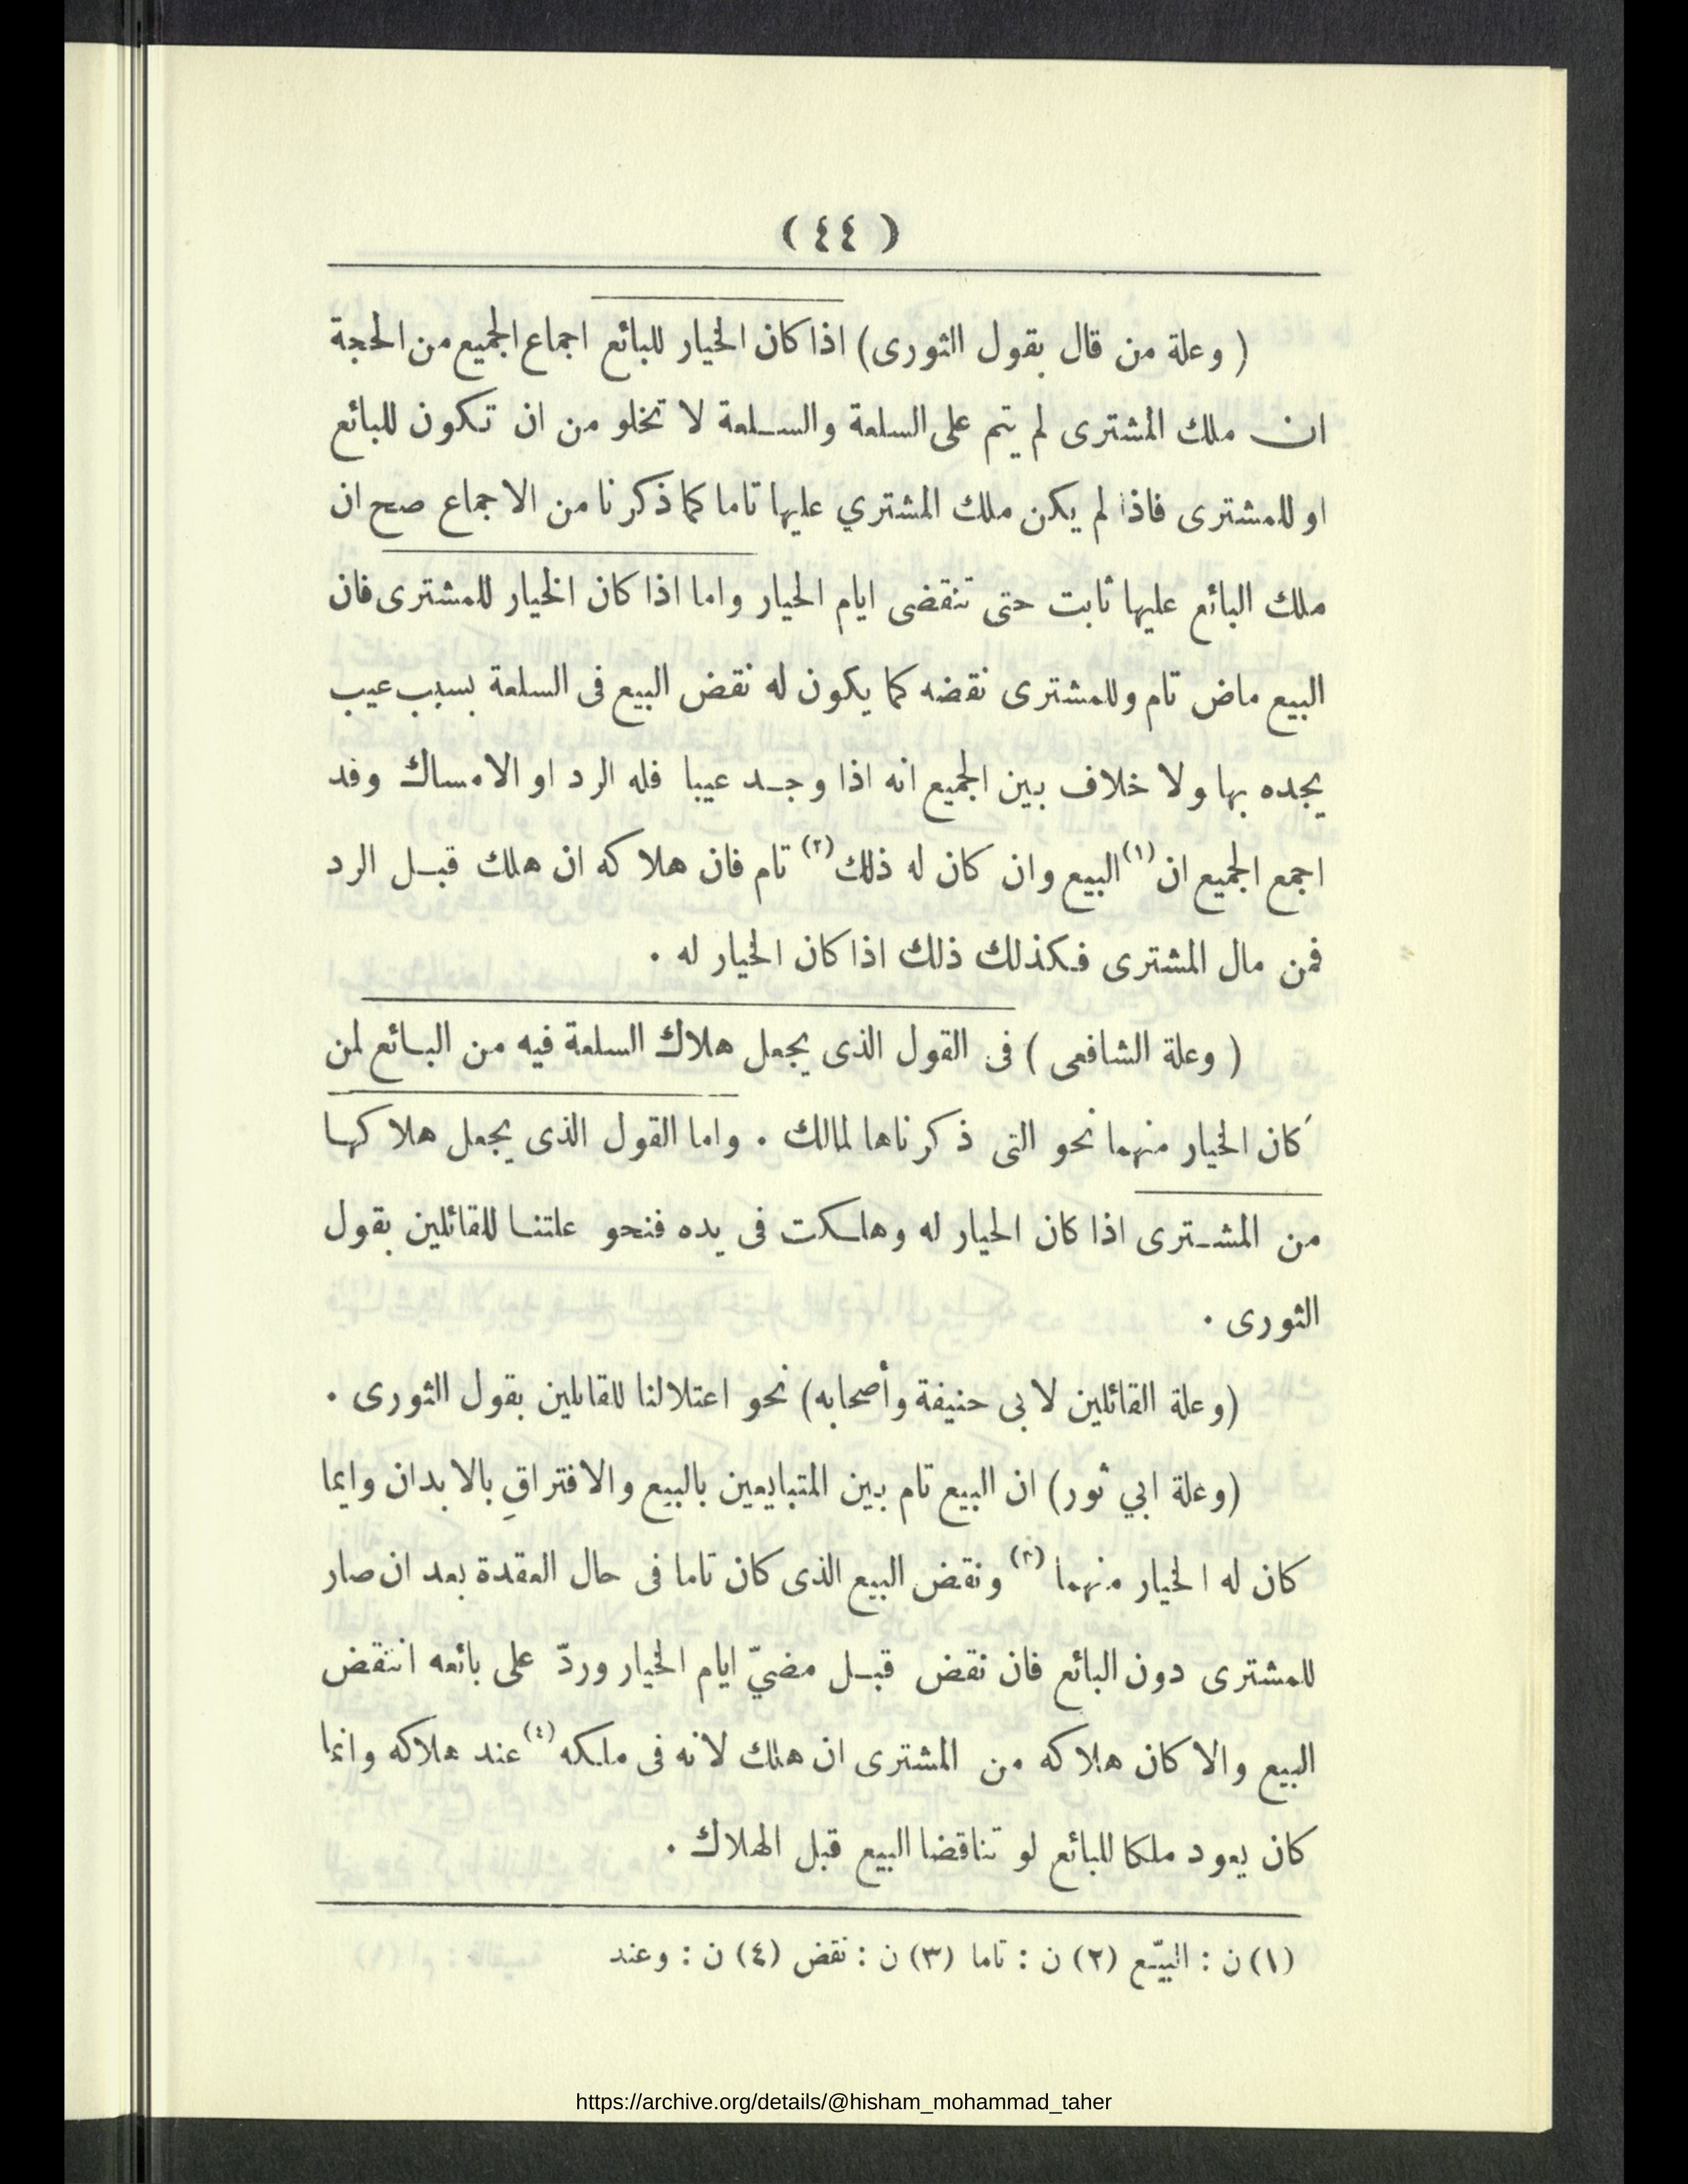 ( ٤٤ )
( وعلة من قال بقول الثورى) اذا كان الخيار للبائع اجماع الجميع من الحجة
ان ملك المشترى لم يتم على السلعة والسلعة لا تخلو من ان تكون للبائع
او للمشترى فاذا لم يكن ملك المشتري عليها تاما كما ذكرنا من الاجماع صح ان
ملك البائع عليها ثابت حتى تنقضى ايام الخيار واما اذا كان الخيار للمشترى فان
البيع ماض تام وللمشترى نقضه كما يكون له نقض البيع فى السلعة بسبب عيب
يجده بها ولا خلاف بين الجميع انه اذا وجد عيبا فله الرد او الامساك وقد
اجمع الجميع ان(١) البيع وان كان له ذلك(٢) تام فان هلاكه ان هلك قبل الرد
فمن مال المشترى فكذلك ذلك اذا كان الخيار له .
( وعلة الشافعى ) فى القول الذى يجعل هلاك السلعة فيه من البائع لمن
كان الخيار منهما نحو التى ذكرناها لمالك . واما القول الذى يجعل هلاكها
من المشترى اذا كان الخيار له وهلكت فى يده فنحو علتنا للقائلين بقول
الثورى .
(وعلة القائلين لابى حنيفة وأصحابه) نحو اعتلالنا للقايلين بقول الثورى .
(وعلة ابي ثور) ان البيع تام بين المتبايعين بالبيع والافتراقِ بالابدان وايما
كان له الخيار منهما(٣) ونقض البيع الذى كان تاما فى حال العقدة بعد ان صار
للمشترى دون البائع فان نقض قبل مضيّ ايام الخيار وردّ على بائعه انتقض
البيع والا كان هلاكه من المشترى ان هلك لانه فى ملكه(٤) عند هلاكه وانما
كان يعود ملكا للبائع لو تناقضا البيع قبل الهلاك .
(١) ن : البيّع (٢) ن : تاما (٣) ن : نقض (٤) ن : وعند
https://archive.org/details/@hisham_mohammad_taher